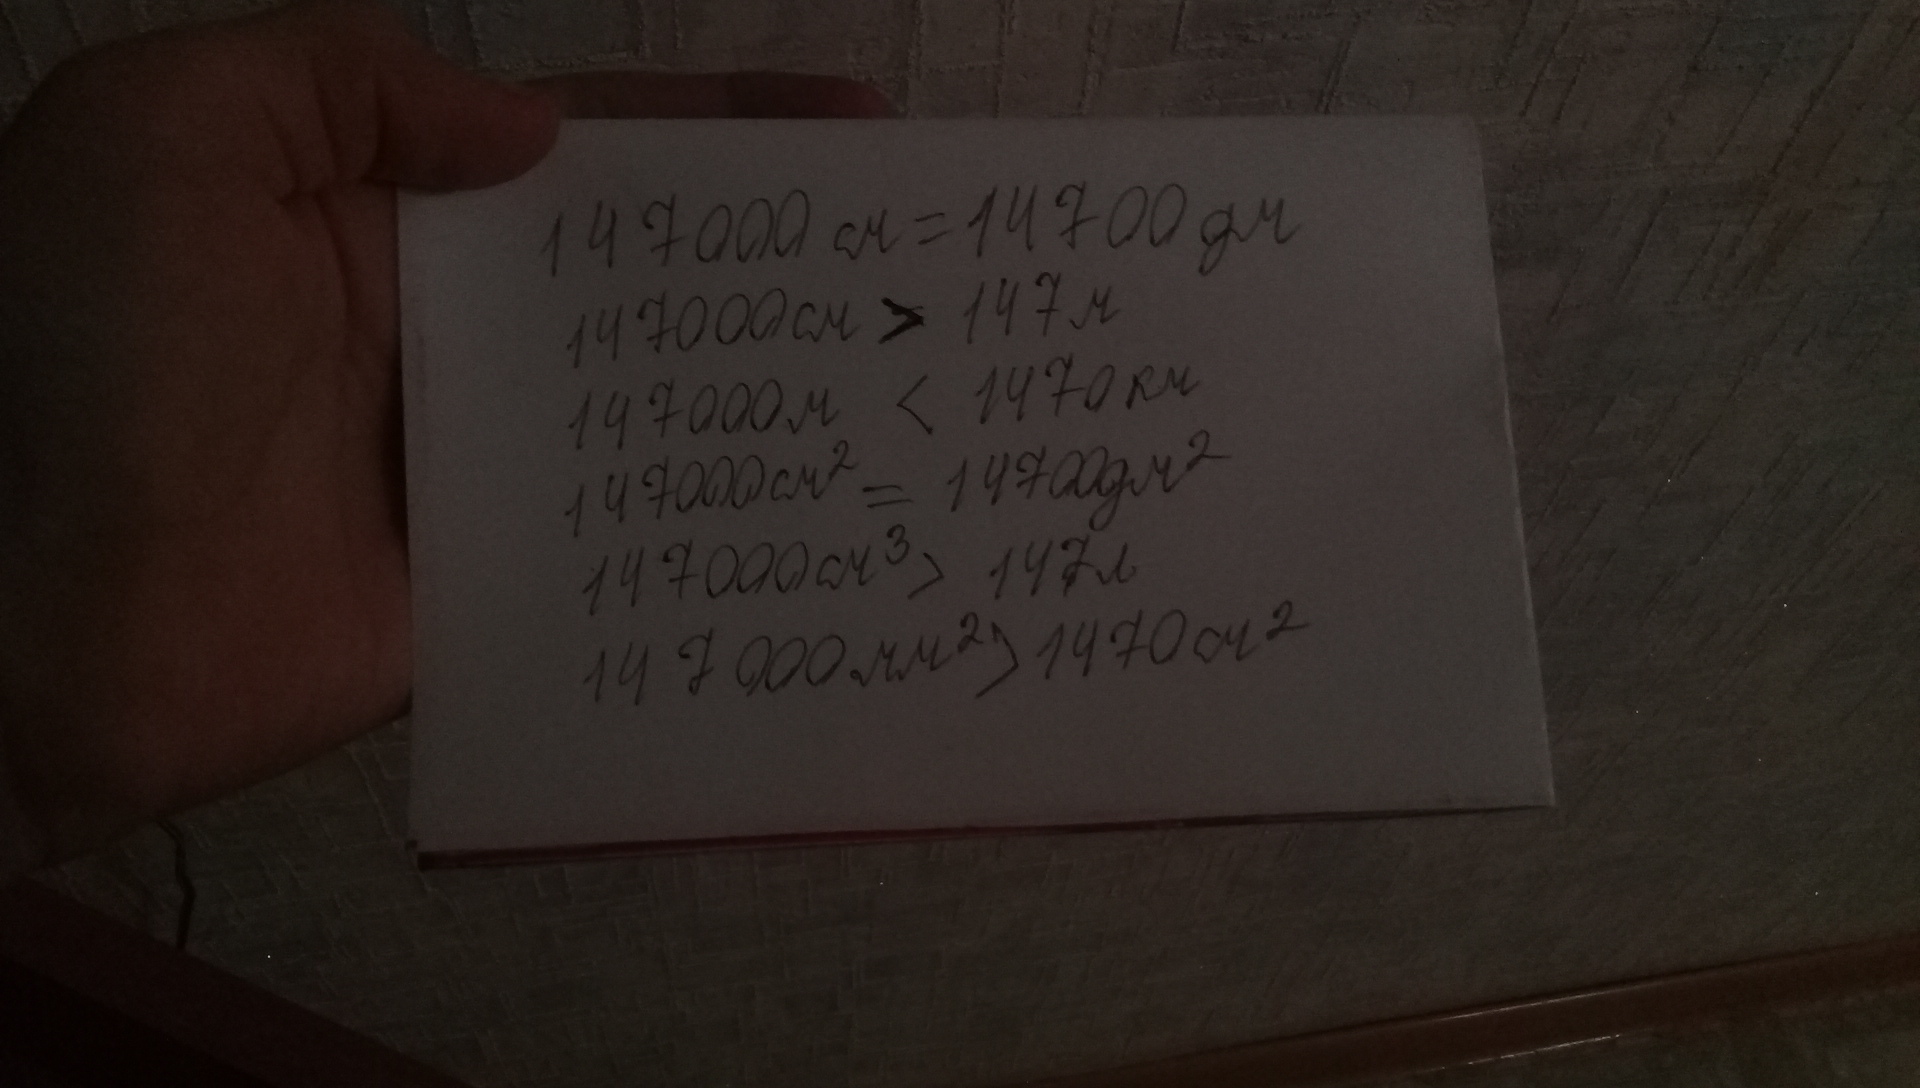 147000 см = 14700 дм
147000 см > 147 м
147000 м < 1470 км
147000 см² = 14700 дм²
147000 см³ > 147 л
147000 мм² > 1470 см²